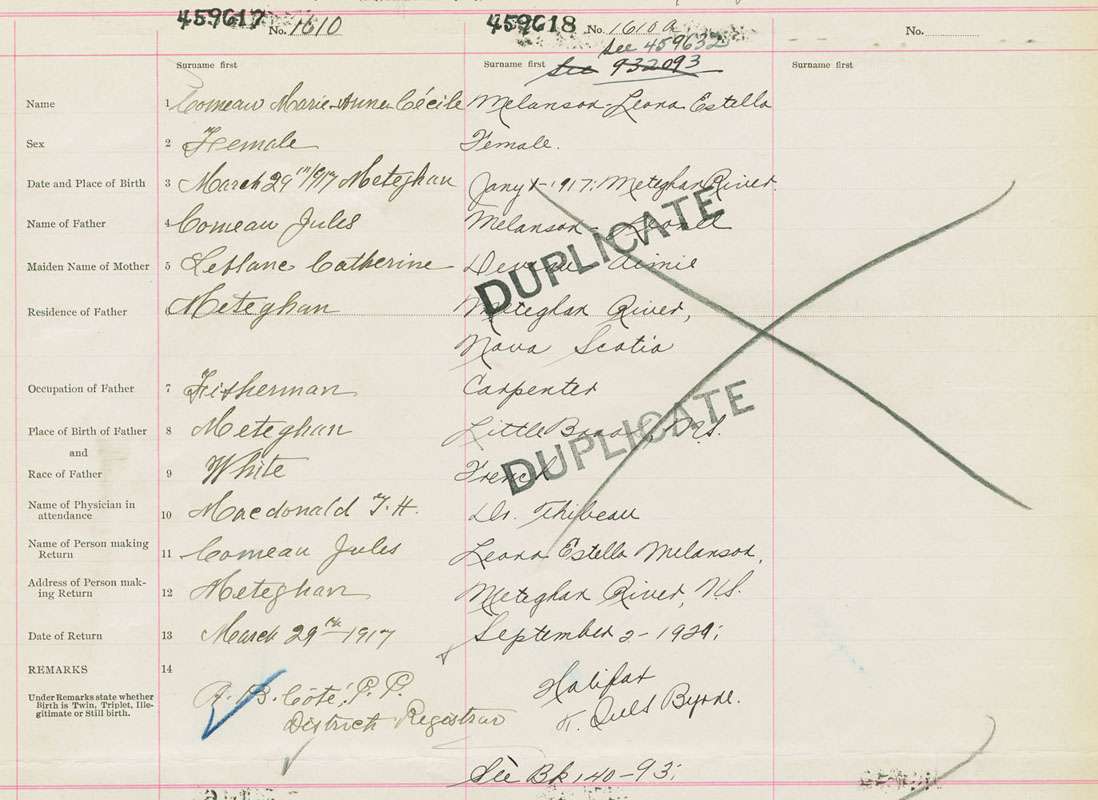 459617 No. 1610 459618 No. 1610 a No.
See 459632
Surname first Surname first See 932093 Surname first
Name 1 Comeau Marie-Anne-Cécile Melanson-Leona Estella
Sex 2 Female Female.
Date and Place of Birth 3 March 29th 1917 Meteghan Jany 1-1917: Meteghan River.
Name of Father 4 Comeau Jules Melanson-
Maiden Name of Mother 5 Leblanc Catherine Aimie
DUPLICATE
Residence of Father 6 Meteghan Meteghan River,
Nova Scotia
Occupation of Father 7 Fisherman Carpenter
Place of Birth of Father 8 Meteghan Little Brook, N.S.
and
DUPLICATE
Race of Father 9 White French
Name of Physician in
attendance 10 Macdonald T. H. Dr. Thibeau
Name of Person making
Return 11 Comeau Jules Leona Estella Melanson,
Address of Person mak-
ing Return 12 Meteghan Meteghan River, N.S.
Date of Return 13 March 29th 1917 September 2-1929;
REMARKS 14
Under Remarks state whether
Birth is Twin, Triplet, Ille-
gitimate or Still birth.
A. B. Côté, P. P. Halifax
District Registrar Byrne.
See Bk 140-93;